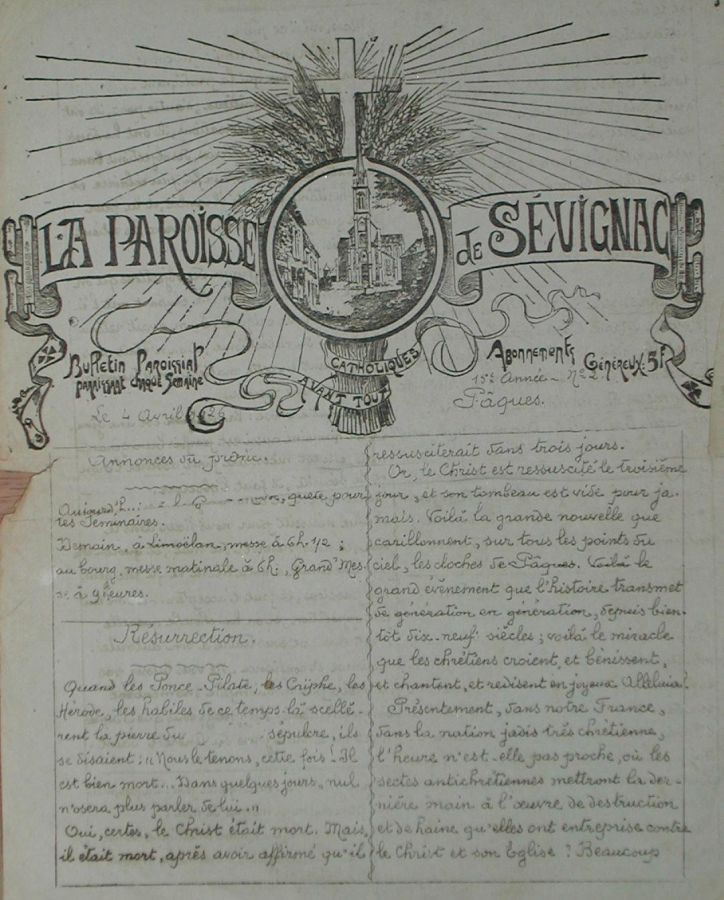 LA PAROISSE
de SÉVIGNAC
Bulletin Paroissial
paraissant chaque Semaine
CATHOLIQUES
AVANT TOUT
Abonnements
Généreux: 5F
15e Année - No 2
Le 4 Avril 1926
Pâques.
Annonces du prône.
quête pour
les Séminaires.
Demain, à Limoëlan, messe à 6h. 1/2 ;
au bourg, messe matinale à 6h., Grand'Mes-
se à 9 heures.
Résurrection.
Quand les Ponce-Pilate, les Caïphe, les
Hérode, les habiles de ce temps-là scellè-
rent la pierre du sépulcre, ils
se disaient : "Nous le tenons, cette fois ! Il
est bien mort... Dans quelques jours, nul
n'osera plus parler de lui."
Oui, certes, le Christ était mort. Mais
il était mort, après avoir affirmé qu'il
ressusciterait dans trois jours.
Or, le Christ est ressuscité le troisième
jour, et son tombeau est vide pour ja-
mais. Voilà la grande nouvelle que
carillonnent, sur tous les points du
ciel, les cloches de Pâques. Voilà le
grand évènement que l'histoire transmet
de génération en génération, depuis bien-
tôt dix-neuf siècles ; voilà le miracle
que les chrétiens croient, et bénissent,
et chantent, et redisent en joyeux Alleluia !
Présentement, dans notre France,
dans la nation jadis très chrétienne,
l'heure n'est-elle pas proche, où les
sectes antichrétiennes mettront la der-
nière main à l'œuvre de destruction
et de haine qu'elles ont entreprise contre
le Christ et son Eglise ? Beaucoup